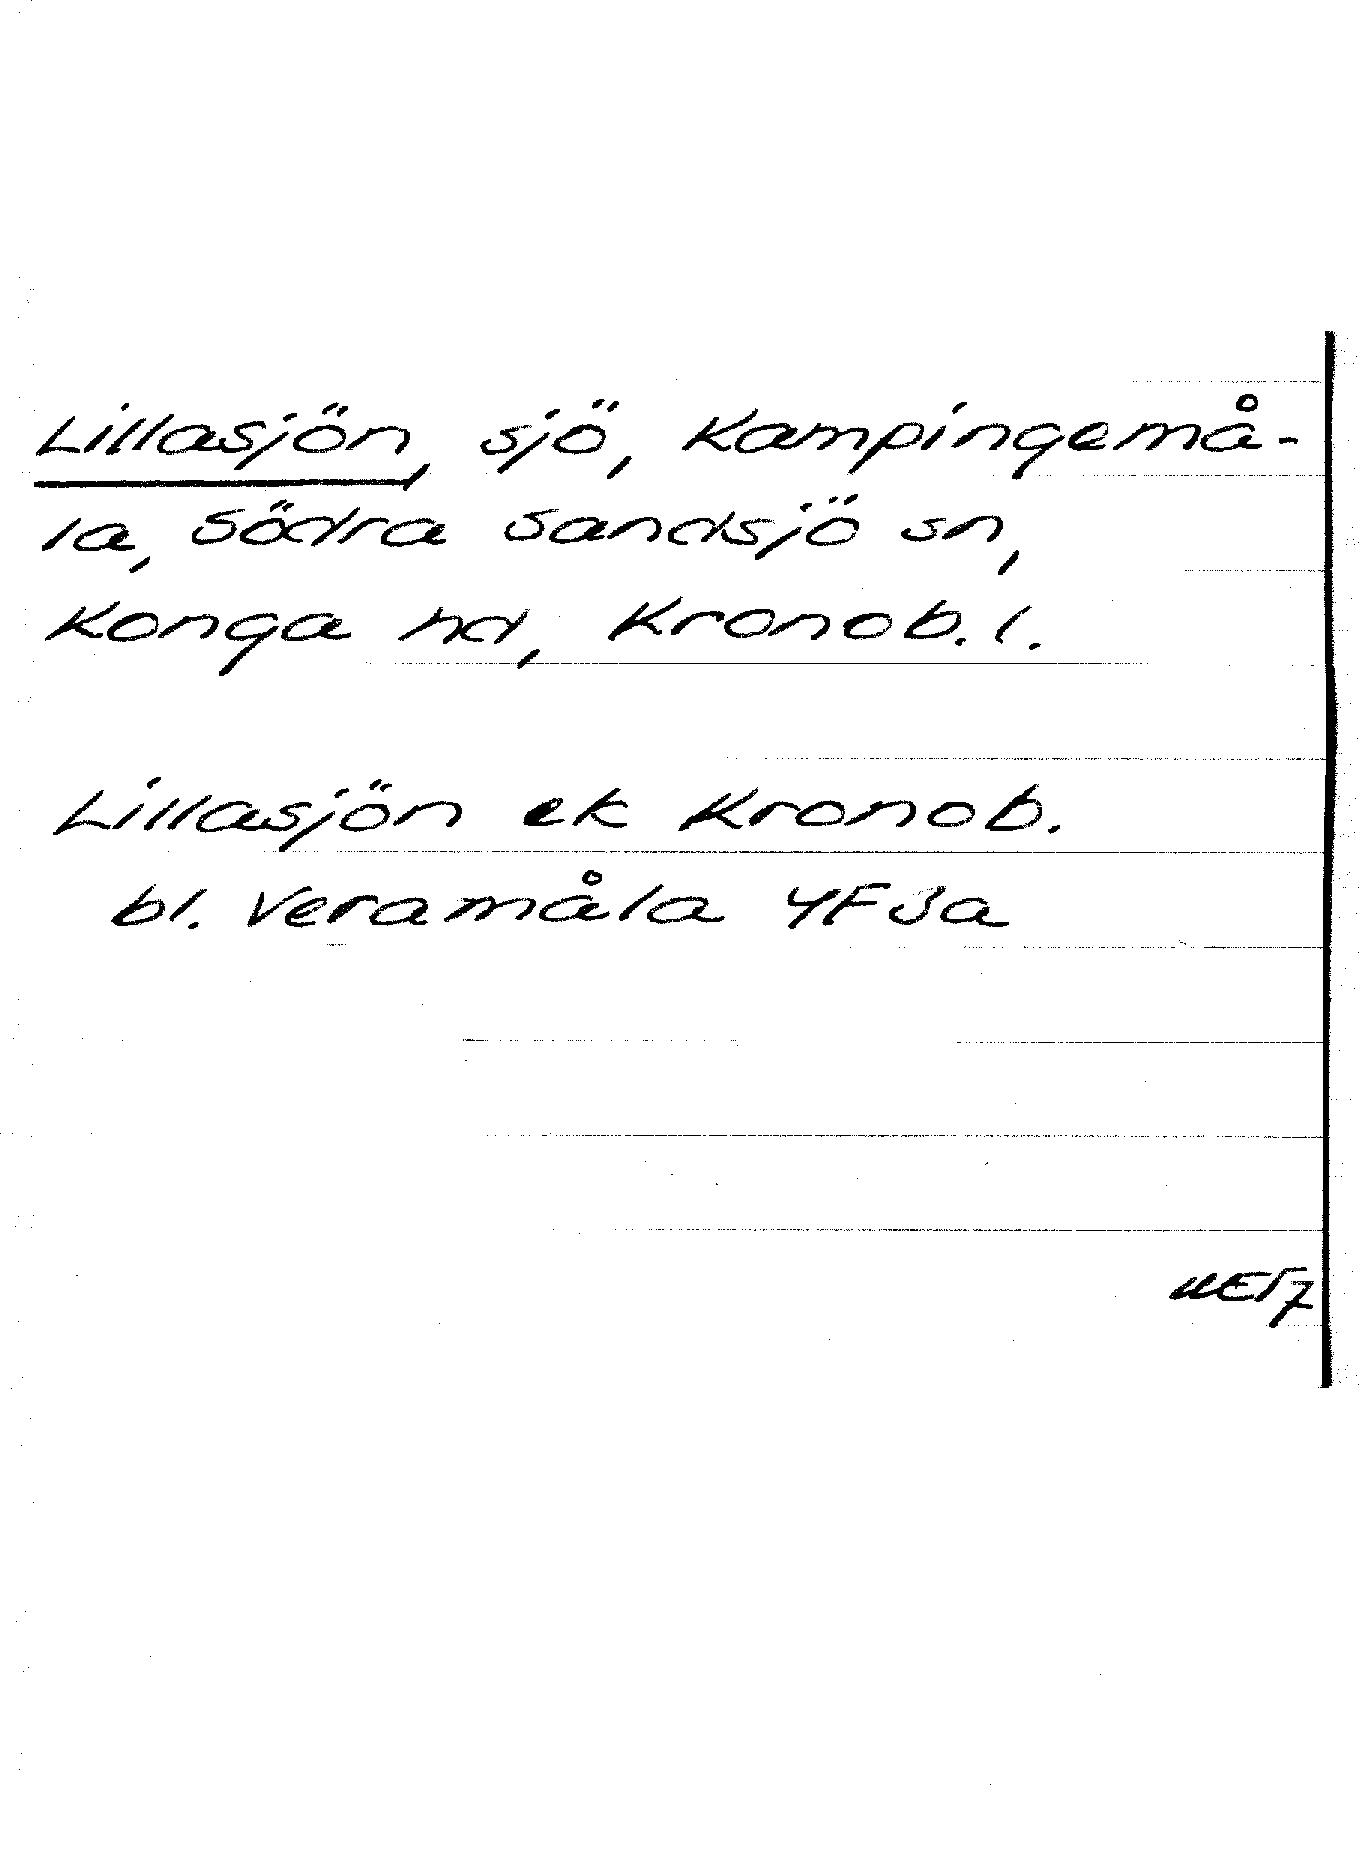 Lillasjön, sjö, Kampingemå-
la, Södra Sandsjö sn,
Konga hd, Kronob. l.
Lillasjön ek Kronob.
bl. Veramåla 4F3a